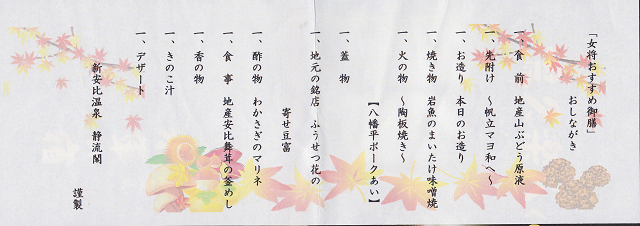 「女将おすすめ御膳」
おしながき
一、食　前　地産山ぶどう原液
一、先附け　～帆立マヨ和へ～
一、お造り　本日のお造り
一、焼き物　岩魚のまいたけ味噌焼
一、火の物　～陶板焼き～
【八幡平ポークあい】
一、蓋　物
一、地元の銘店　ふうせつ花の
寄せ豆富
一、酢の物　わかさぎのマリネ
一、食　事　地産安比舞茸の釜めし
一、香の物
一、きのこ汁
一、デザート
新安比温泉　静流閣
謹製